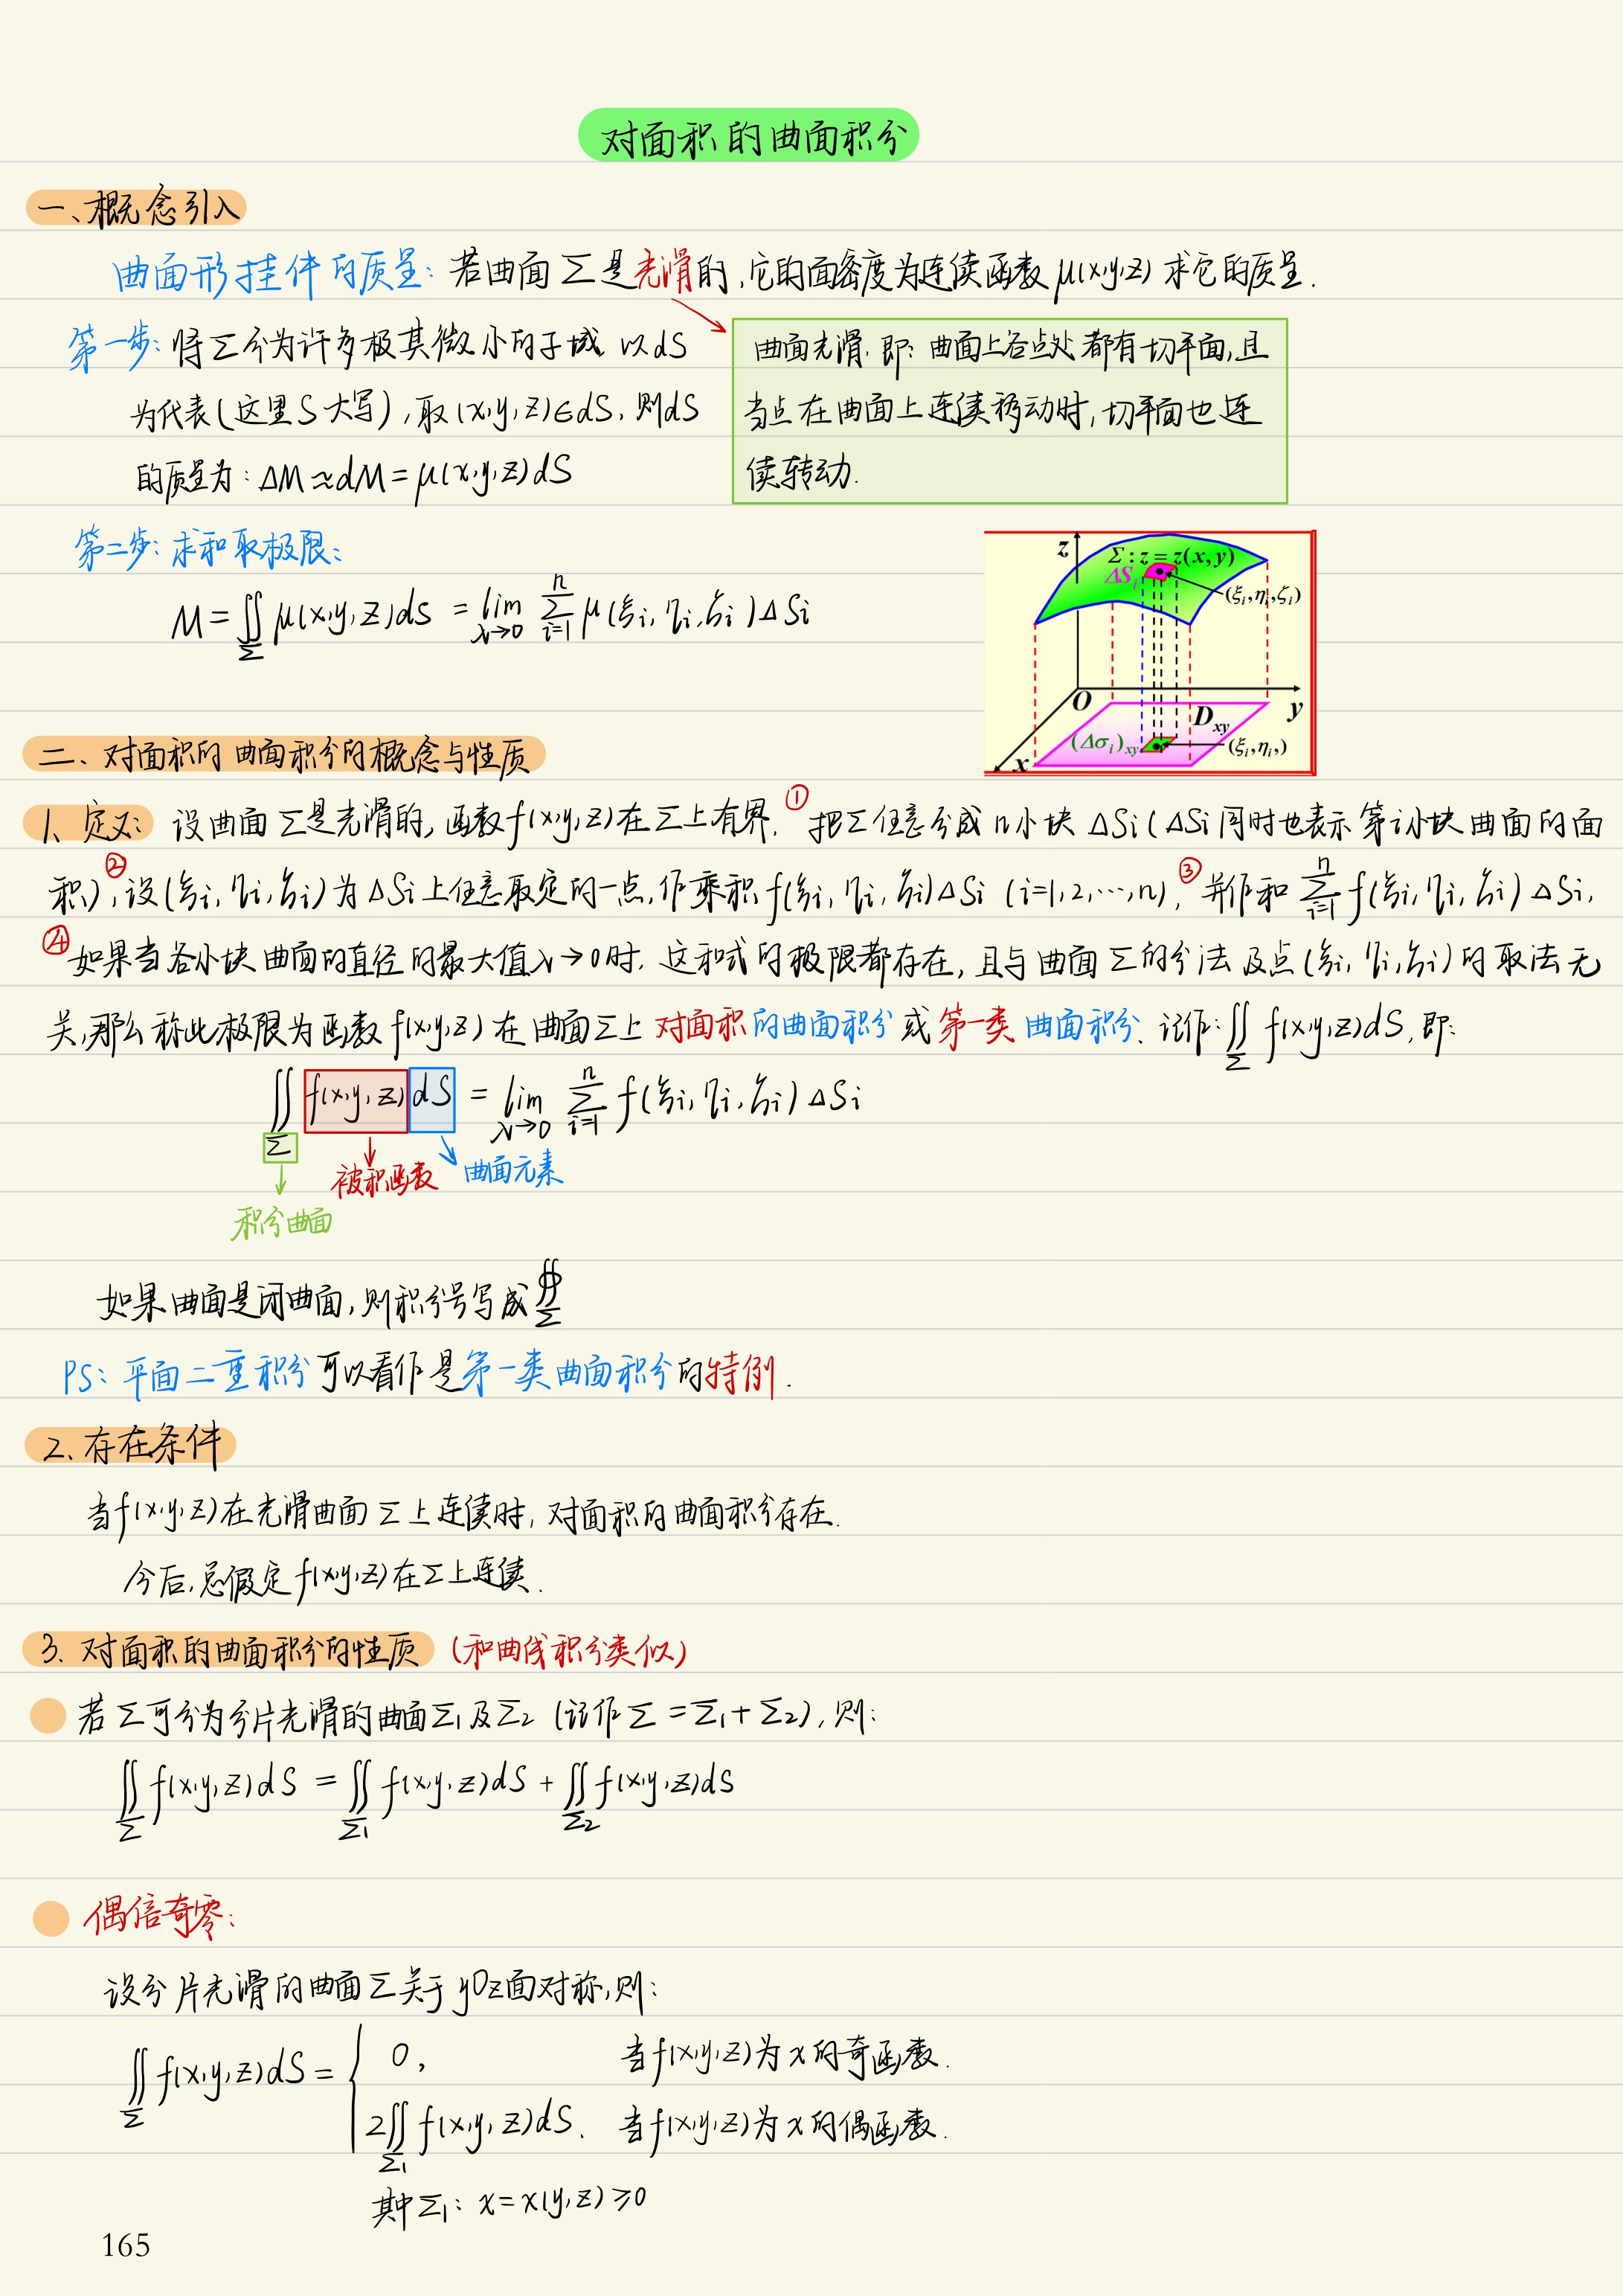 对面积的曲面积分
一、概念引入
曲面形挂件的质量：若曲面Σ是光滑的,它的面密度为连续函数μ(x,y,z) 求它的质量.
第一步：将Σ分为许多极其微小的子域 以dS
为代表(这里S大写),取(x,y,z)∈dS,则dS
的质量为：ΔM≈dM=μ(x,y,z)dS
曲面光滑,即：曲面上各点处都有切平面,且
当点在曲面上连续移动时,切平面也连
续转动.
第二步：求和取极限：
M=∬_Σ μ(x,y,z)dS = lim_{λ→0} Σ_{i=1}^{n} μ(ξi,ηi,ζi)ΔSi
z
Σ:z=z(x,y)
ΔSi
(ξi,ηi,ζi)
O
y
Dxy
(Δσi)xy
(ξi,ηi,)
x
二、对面积的曲面积分的概念与性质
1、定义： 设曲面Σ是光滑的,函数f(x,y,z)在Σ上有界. ①把Σ任意分成n小块ΔSi(ΔSi同时也表示第i小块曲面的面
积)②,设(ξi,ηi,ζi)为ΔSi上任意取定的一点,作乘积f(ξi,ηi,ζi)ΔSi (i=1,2,…,n),③并作和 Σ_{i=1}^{n} f(ξi,ηi,ζi)ΔSi,
④如果当各小块曲面的直径的最大值λ→0时,这和式的极限都存在,且与曲面Σ的分法及点(ξi,ηi,ζi)的取法无
关,那么称此极限为函数f(x,y,z)在曲面Σ上对面积的曲面积分或第一类曲面积分.记作：∬_Σ f(x,y,z)dS,即：
∬_Σ f(x,y,z)dS = lim_{λ→0} Σ_{i=1}^{n} f(ξi,ηi,ζi)ΔSi
被积函数 曲面元素
积分曲面
如果曲面是闭曲面,则积分号写成∯_Σ
PS：平面二重积分可以看作是第一类曲面积分的特例.
2、存在条件
当f(x,y,z)在光滑曲面Σ上连续时,对面积的曲面积分存在.
今后,总假定f(x,y,z)在Σ上连续.
3. 对面积的曲面积分的性质 (和曲线积分类似)
若Σ可分为分片光滑的曲面Σ1及Σ2 (记作Σ=Σ1+Σ2),则：
∬_Σ f(x,y,z)dS = ∬_Σ1 f(x,y,z)dS + ∬_Σ2 f(x,y,z)dS
偶倍奇零：
设分片光滑的曲面Σ关于yOz面对称,则：
∬_Σ f(x,y,z)dS = { 0, 当f(x,y,z)为x的奇函数.
2∬_Σ1 f(x,y,z)dS. 当f(x,y,z)为x的偶函数.
其中Σ1：x=x(y,z)≥0
165